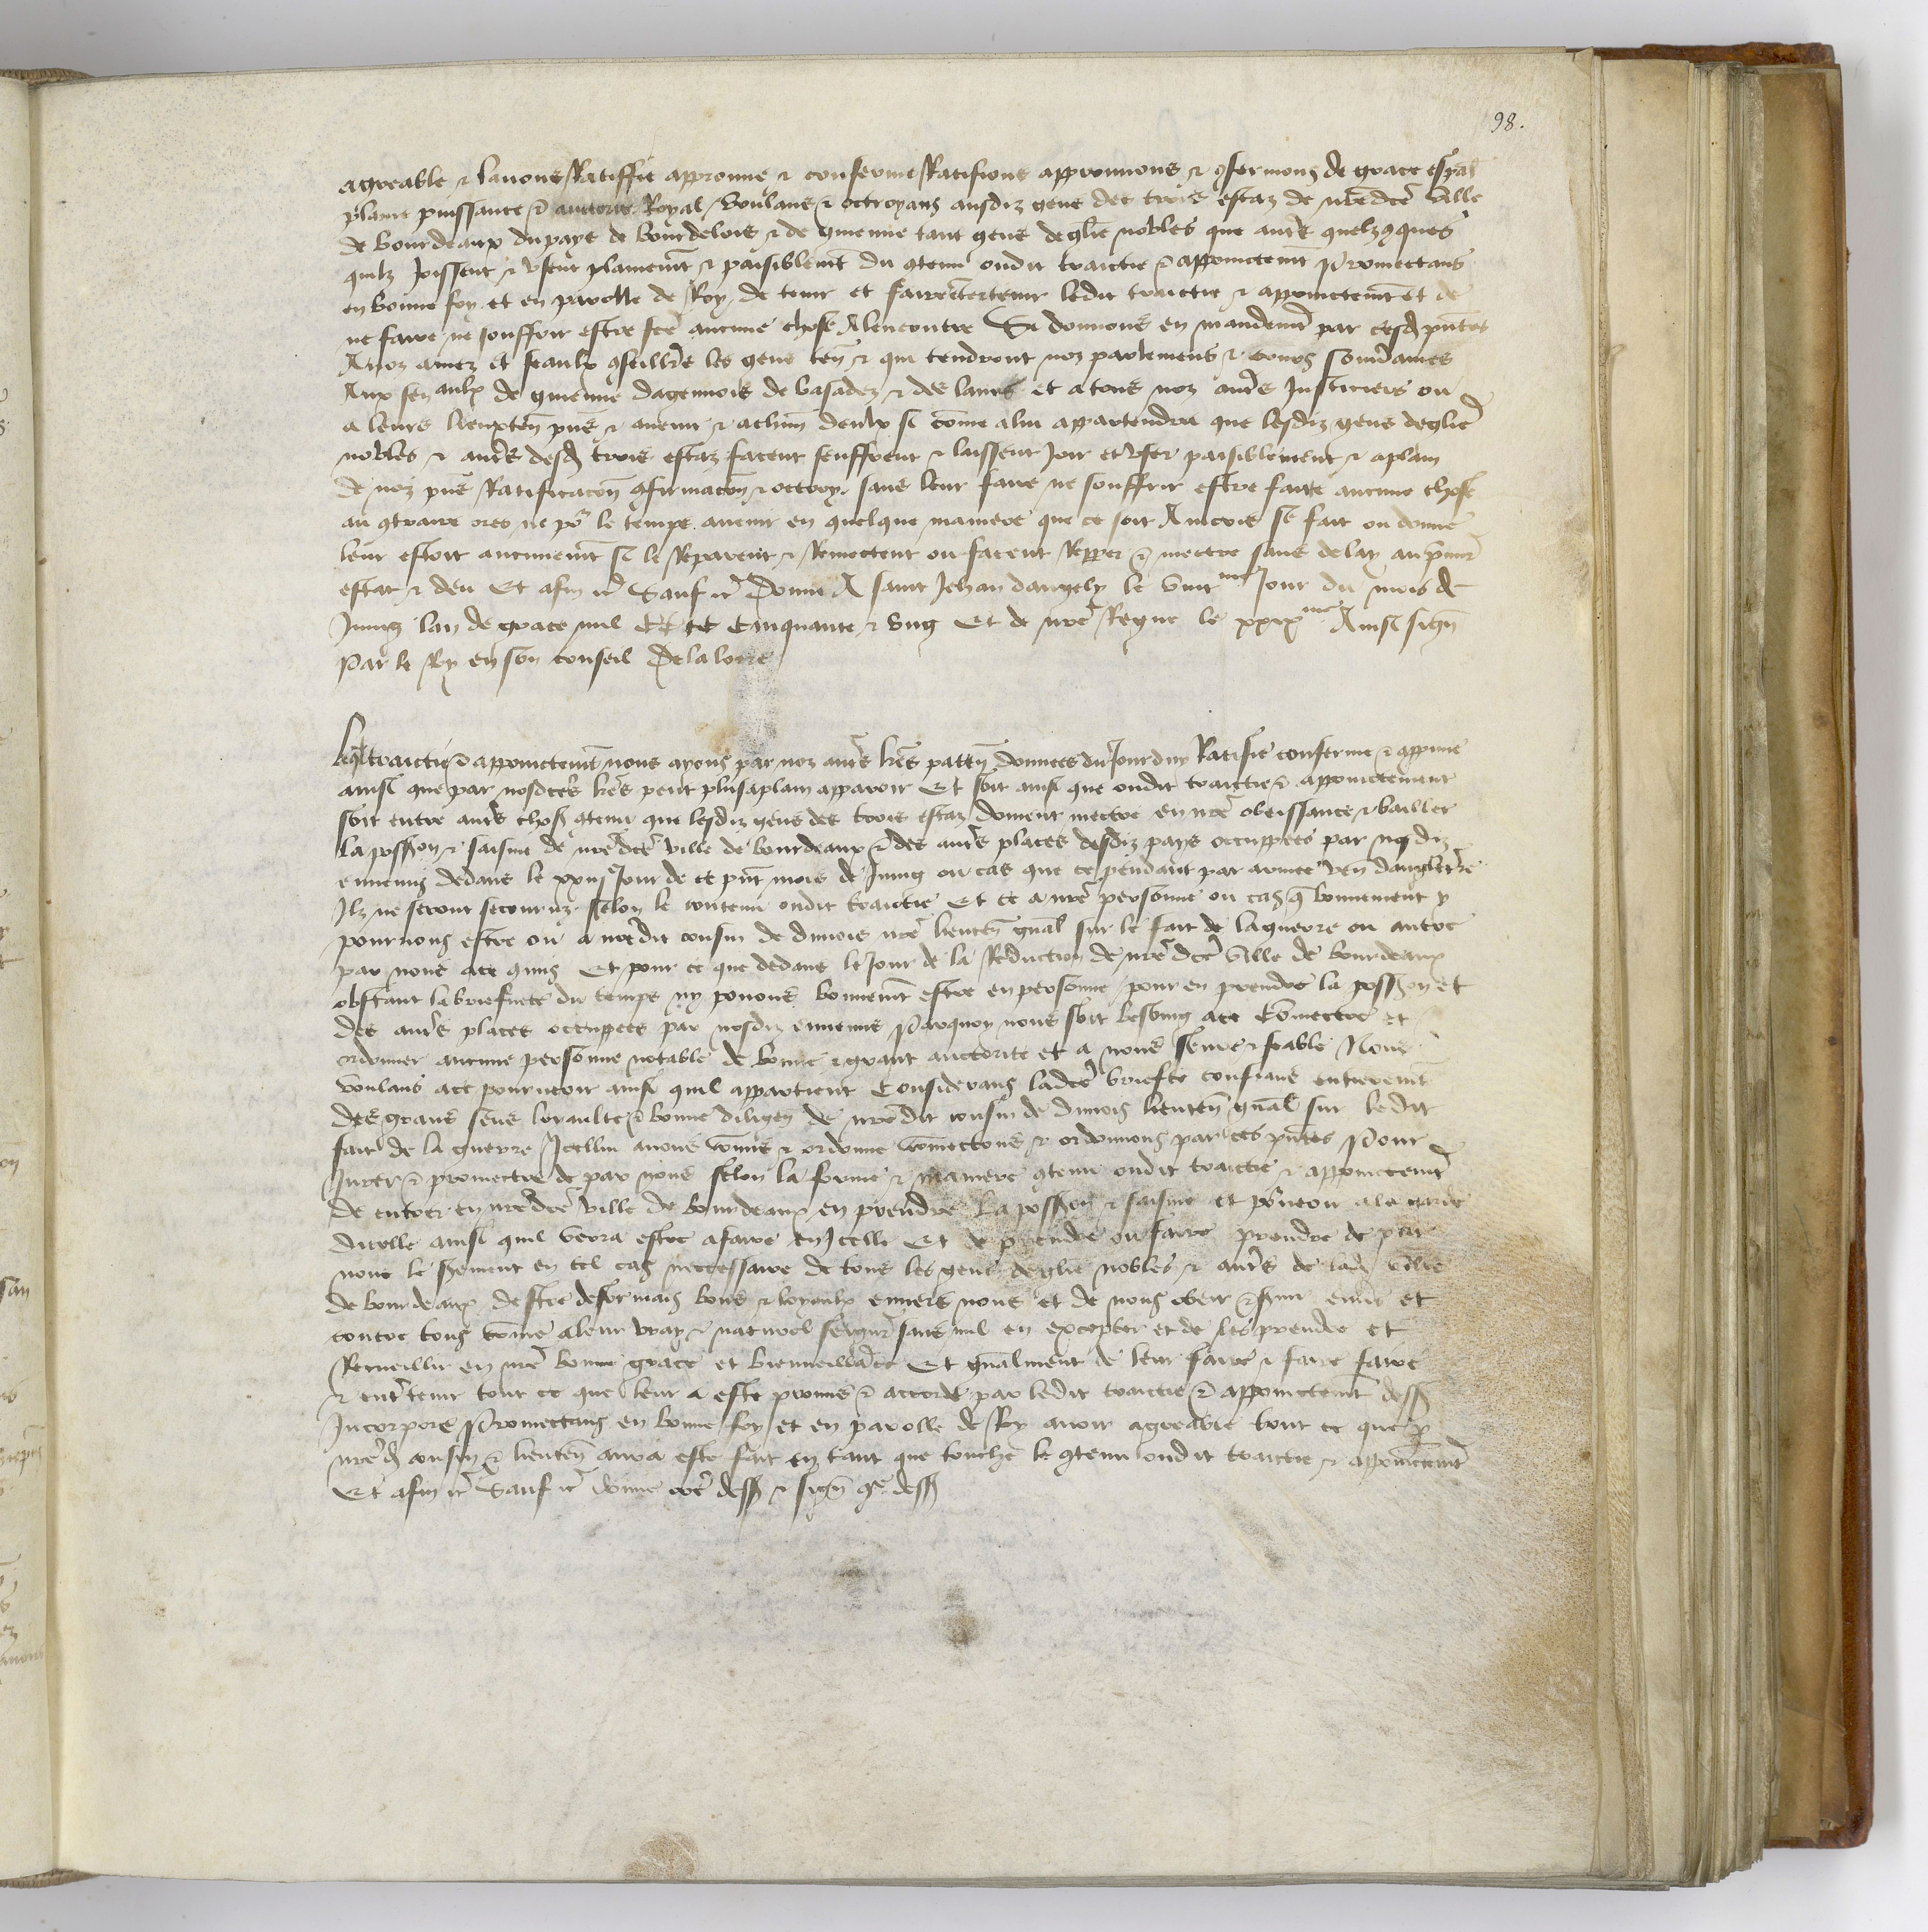 98.
agreable & lavons Ratiffié approuvé & confermé Ratifions approuvons & 9fermons de grace espal
plaine puissance & auctorite Royal / Voulans & octroyans ausdiz gens des trois estaz de nre dce ville
de bourdeaux du pays de bourdelois & de guienne tant gens deglise nobles que autres quelz9ques
quilz joissent & usent plainement & paisiblement du 9tenu oudit traictie & appoinctement Promectans
en bonne foy et en parolle de Roy de tenir et faire entretenir ledit traictie & appoinctement Et de
ne faire ne souffrir estre fce aucune chose Alencontre Si donnons en mandement par cesd pntes
A noz amez et feaulx 9seilliers les gens ten & qui tendront noz parlemens & cours souveraines
Aux senaulx de guienne dagennois de basadez & des lanes et a tous noz autres Justiciers ou
a leurs lieuxten pns & avenir & a chun deulx si comme a lui appartendra que lesdiz gens deglise
nobles & autres desd trois estaz facent seuffrent & laissent joir et user paisiblement & aplain
de noz pns Ratificacion 9firmacion & octroy sans leur faire ne souffrir estre faite aucune chose
au 9traire ores ne po le temps avenir en quelque maniere que ce soit Aincois se fait ou donne
leur estoit aucunement si le Reparent & Remectent ou facent Repper & mectre sans delay au premier
estat & deu Et afin &c Sauf &c Donne A saint Jehan dangely le vint me jour du mois de
Juing lan de grace mil CCCC Cinquante & ung Et de nre Regne le xxix me Ainsi sign
Par le Roy en son conseil Delaloere
Lequel traictie & appoinctement nous ayons par noz autres lres patten donnees du jourduy Ratifie conferme & appuve
ainsi que par nosdces lres peut plus aplain apparoir Et soit ainsi que oudit traictie & appoinctement
soit entre autres choses 9tenu que lesdiz gens des trois estaz doivent mectre en nre obeissance & bailler
la possion & saisine de nre dce ville de bourdeaux & des autres places desdiz pays occuppees par nosdiz
ennemis dedans le xxiije jour de ce pnt mois de Juing ou cas que ce pendant par armee ven dangleterre
Ilz ne seront secouruz selon le contenu oudit traictie Et ce a nre personne ou cas que bonnement y
pourrions estre ou a nredit cousin de dunois nre lieuten gnal sur le fait de la guerre ou autre
par nous ace 9mis Et pour ce que dedans le jour de la Reduction de nre dce ville de bourdeaux
obstant la briefvete du temps ny povons bonnement estre en personne pour en prendre la possion et
des autres places occuppees par nosdiz ennemis Parquoy nous soit besoing ace Commectre et
ordonner aucune personne notable de bonne & grant auctorite et a nous seure & feable Nous
voulans ace pourveoir ainsi quil appartient Considerans ladce briefte confians entierement
des grans sens loyaulte & bonne diligen de nredit cousin de dunois lieuten gnal sur ledit
fait de la guerre Icellui avons comis & ordonne commectons & ordonnons par ces pntes Pour
Jurer & promectre de par nous selon la forme & maniere 9tenu oudit traictie & appoinctement
de entrer en nre dce ville de bourdeaux en prendre la possion & saisine et pourveoir a la garde
dicelle ainsi quil verra estre afaire en Icelle Et de prendre ou faire prendre de par
nous le serment en tel cas neccessaire de tous les gens deglise nobles & autres de lad ville
de bourdeaux destre desormais bons & loyaulx envers nous et de nous obeir & servir envers et
contre tous comme a leur vray & naturel seigneur sans nul en excepter et de les prendre et
Recueillir en nre bonne grace et bienveillance Et gnalment de leur faire & faire faire
& entretenir tout ce que leur a este promis & accorde par ledit traictie & appoinctement dess
Incorpore Promectans en bonne foy et en parolle de Roy avoir agreable tout ce que par
nred cousin & lieuten aura este fait en tant que touche le 9tenu oudit traictie & appoinctement
Et afin &c Sauf &c donne come dess & sign 9e dess